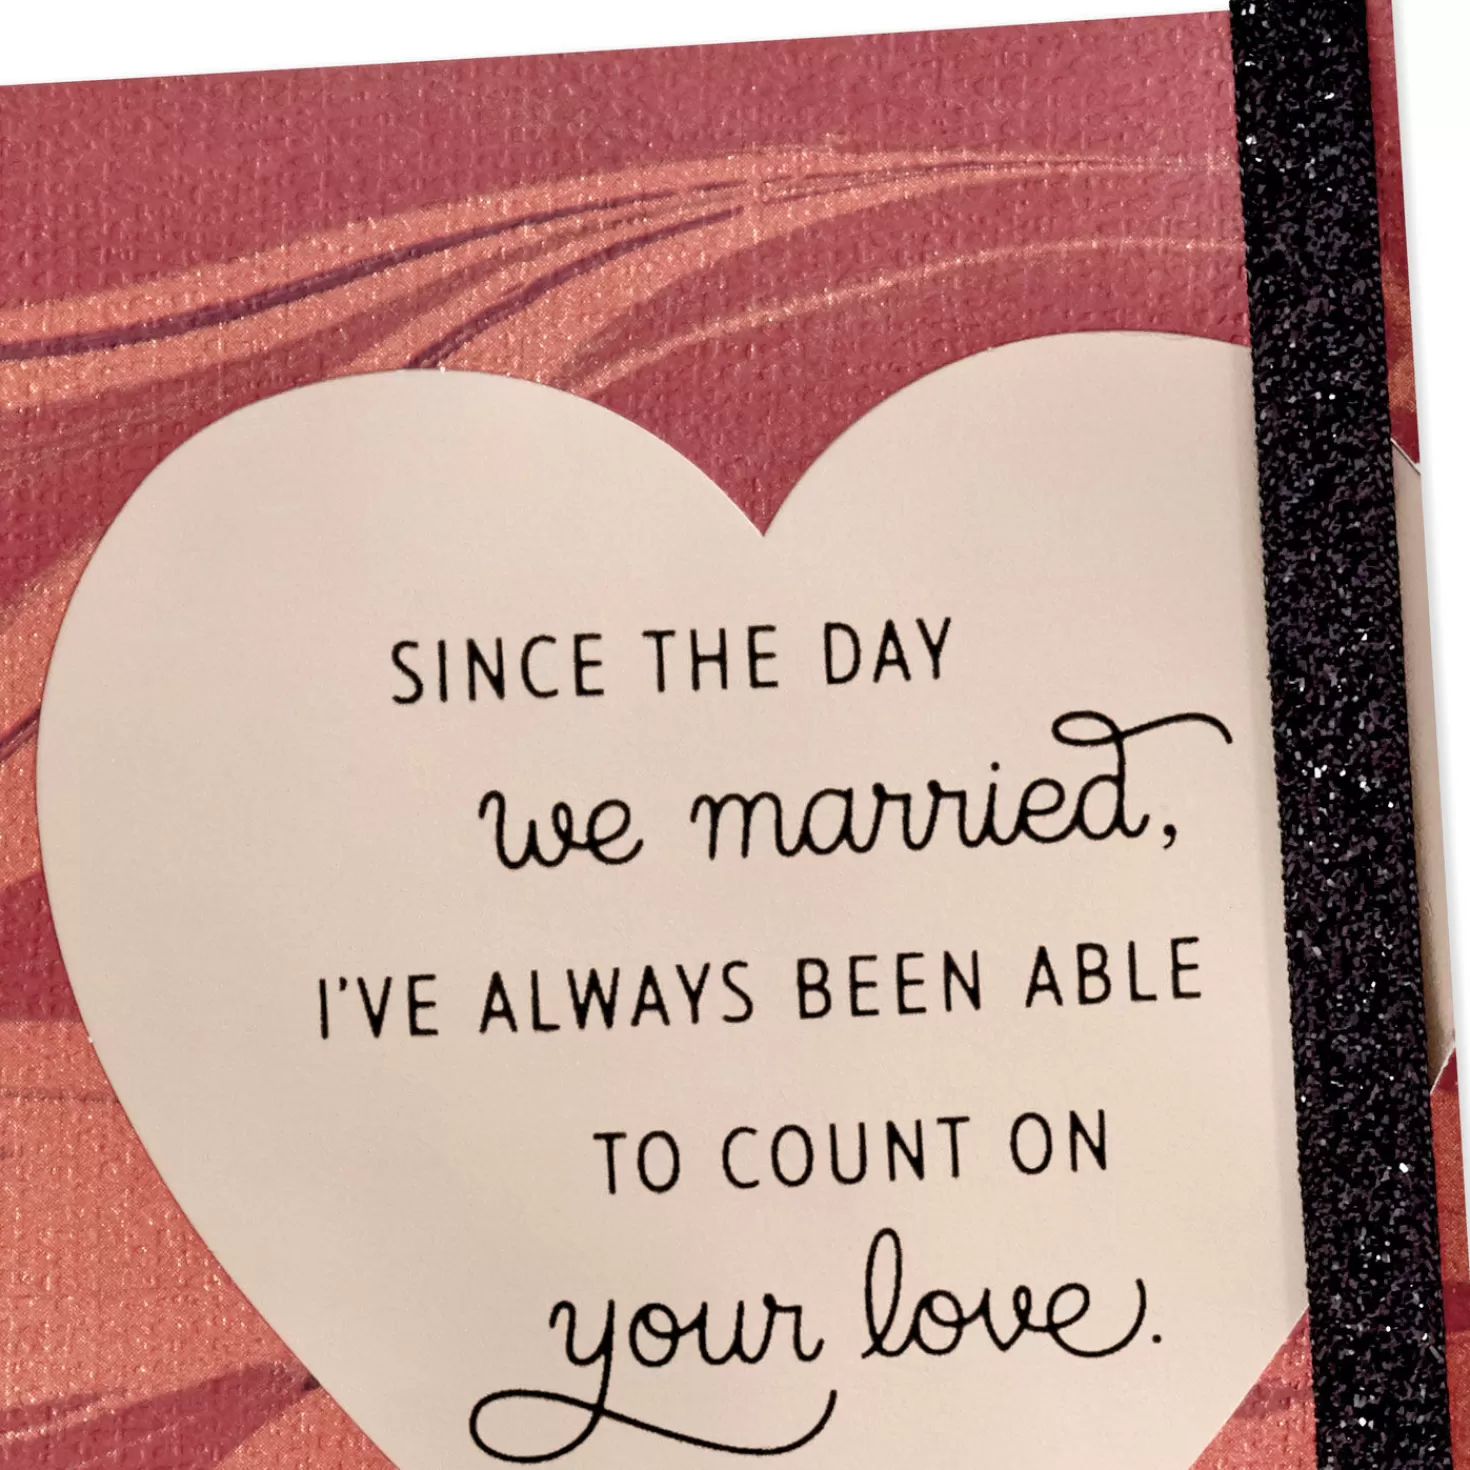 SINCE THE DAY
we married,
I'VE ALWAYS BEEN ABLE
TO COUNT ON
your love.